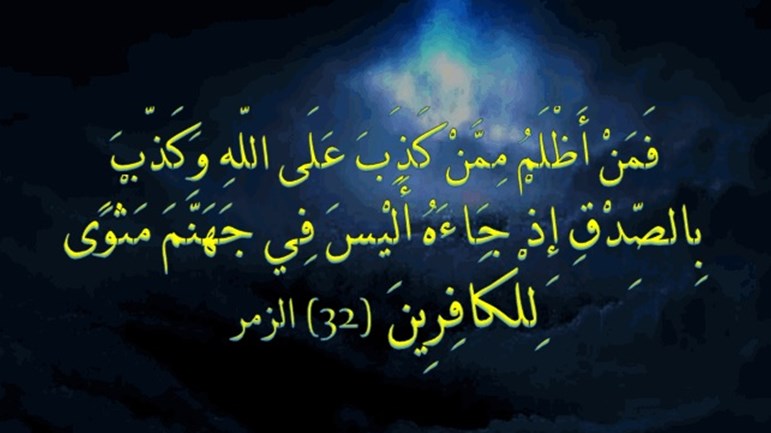 فَمَنْ أَظْلَمُ مِمَّنْ كَذَبَ عَلَى اللَّهِ وَكَذَّبَ
بِالصِّدْقِ إِذْ جَاءَهُ أَلَيْسَ فِي جَهَنَّمَ مَثْوًى
لِلْكَافِرِينَ (32) الزمر